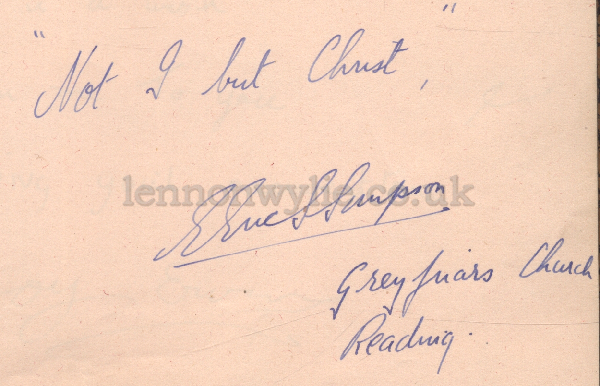 "Not I but Christ,"
lennonwylie.co.uk
Simpson
Greyfriars Church
Reading.